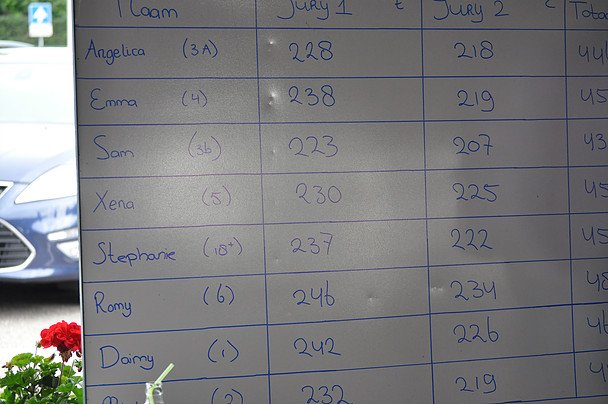 Naam Jury 1 Jury 2
Angelica (3A) 228 218
Emma (4) 238 219
Sam (3b) 223 207
Xena (5) 230 225
Stephanie (18+) 237 222
Romy (6) 246 234
Daimy (1) 242 226
(2) 232 219